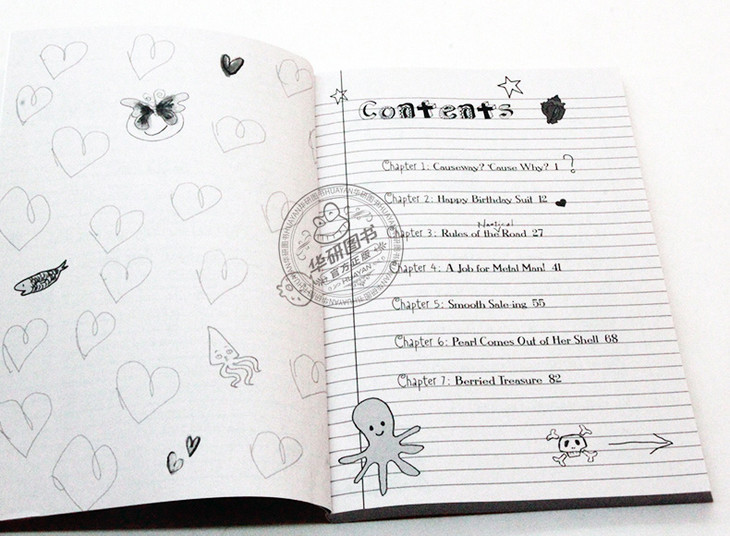 Contents
Chapter 1: Causeway? 'Cause Why? 1 ?
Chapter 2: Happy Birthday Suit 12
Nautical
Chapter 3: Rules of the Road 27
Chapter 4: A Job for Metal Man! 41
Chapter 5: Smooth Sale-ing 55
Chapter 6: Pearl Comes Out of Her Shell 68
Chapter 7: Berried Treasure 82
华研图书
官方正版
HUAYAN